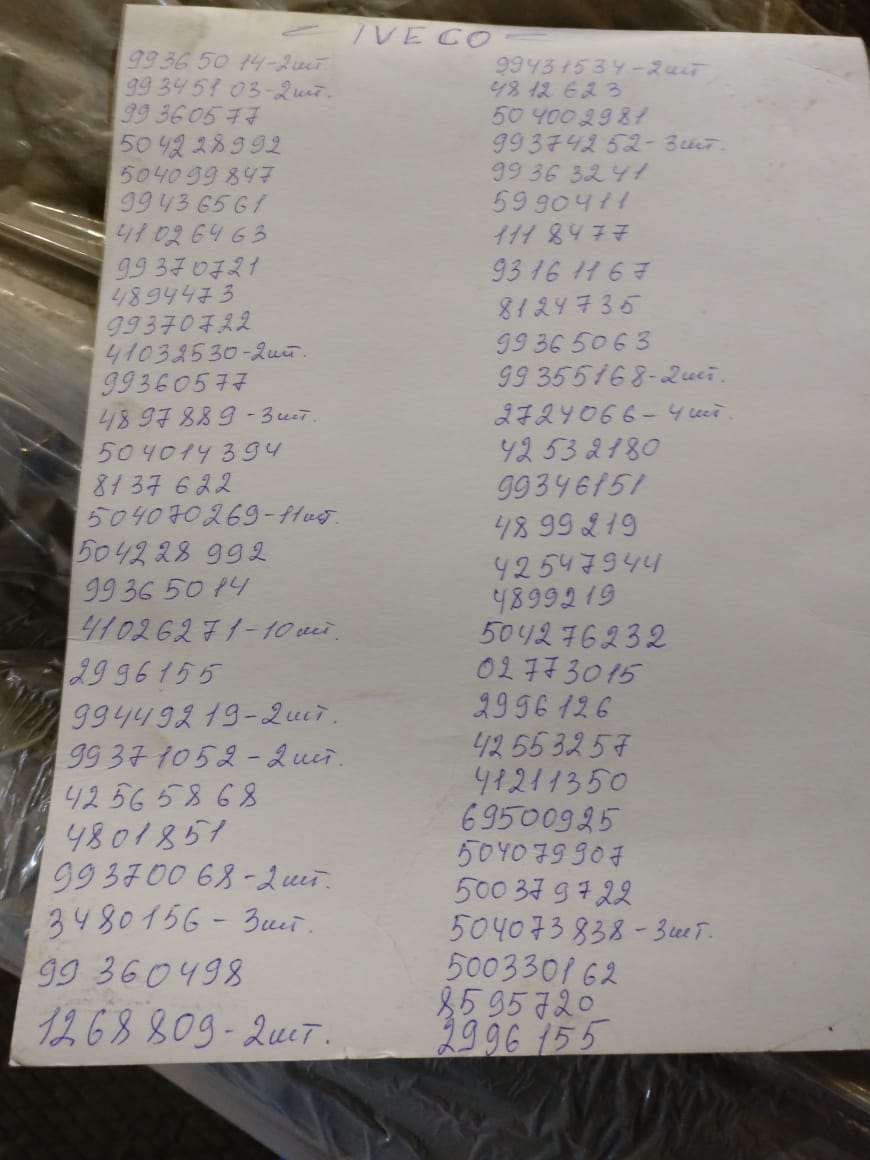 - IVECO -
99365014-2шт
99345103-2шт.
99360577
504228992
504099847
99436561
41026463
99370721
4894473
99370722
41032530-2шт.
99360577
4897889-3шт.
504014394
8137622
504070269-11шт.
504228992
99365014
41026271-10шт.
2996155
99449219-2шт.
99371052-2шт.
42565868
4801851
99370068-2шт.
3480156-3шт.
99360498
1268809-2шт.
99431534-2шт
4812623
504002981
99374252-3шт.
99363241
5990411
1118477
93161167
8124735
99365063
99355168-2шт.
2724066-4шт.
42532180
99346151
4899219
42547944
4899219
504276232
02773015
2996126
42553257
41211350
69500925
504079907
500379722
504073838-3шт.
500330162
8595720
2996155